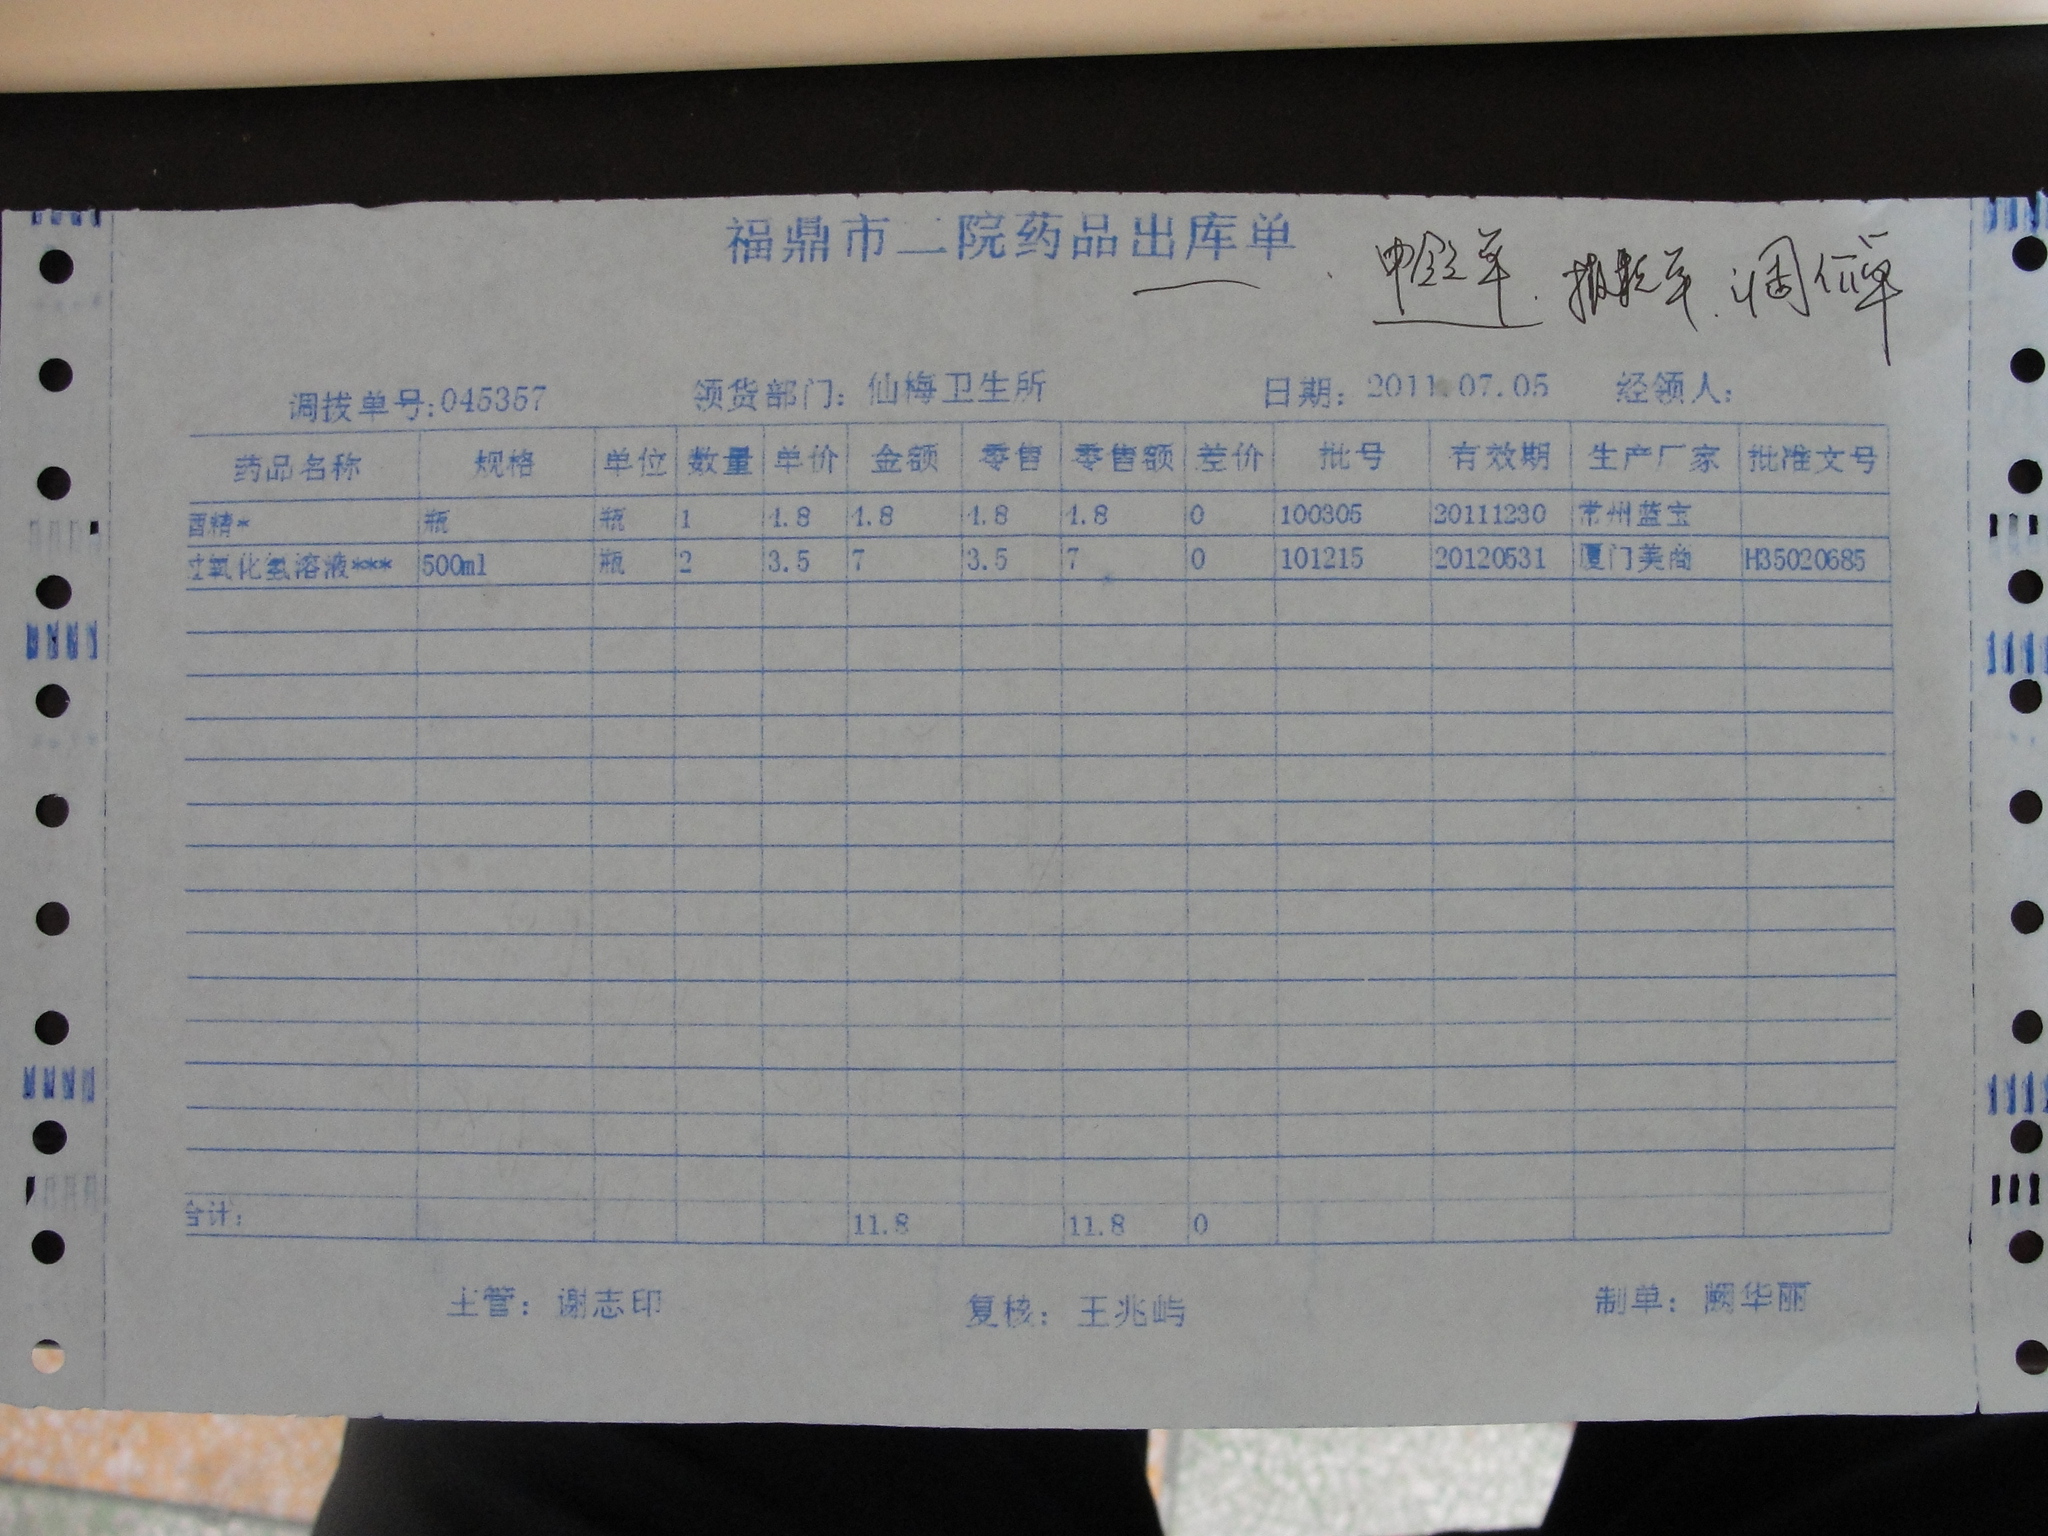 福鼎市二院药品出库单
调价单
调拔单号:045357 领货部门: 仙梅卫生所 日期: 2011.07.05 经领人:
药品名称 规格 单位 数量 单价 金额 零售 零售额 差价 批号 有效期 生产厂家 批准文号
酒精* 瓶 瓶 1 4.8 4.8 4.8 4.8 0 100305 20111230 常州蓝宝
过氧化氢溶液*** 500ml 瓶 2 3.5 7 3.5 7 0 101215 20120531 厦门美商 H35020685
合计: 11.8 11.8 0
主管: 谢志印 复核: 王兆屿 制单: 阙华丽